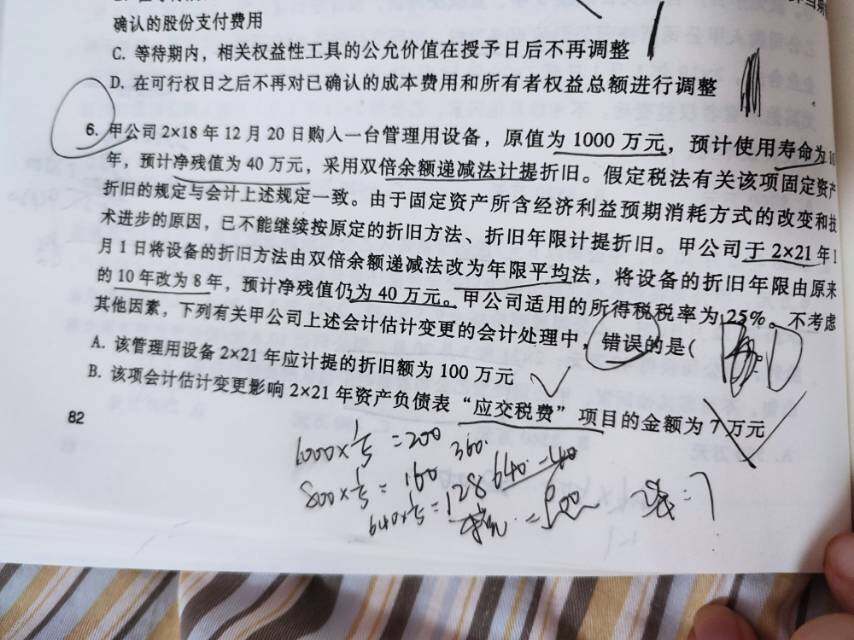 确认的股份支付费用
C. 等待期内，相关权益性工具的公允价值在授予日后不再调整
D. 在可行权日之后不再对已确认的成本费用和所有者权益总额进行调整
6. 甲公司 2×18 年 12 月 20 日购入一台管理用设备，原值为 1000 万元，预计使用寿命为 10
年，预计净残值为 40 万元，采用双倍余额递减法计提折旧。假定税法有关该项固定资产
折旧的规定与会计上述规定一致。由于固定资产所含经济利益预期消耗方式的改变和技
术进步的原因，已不能继续按原定的折旧方法、折旧年限计提折旧。甲公司于 2×21 年 1
月 1 日将设备的折旧方法由双倍余额递减法改为年限平均法，将设备的折旧年限由原来
的 10 年改为 8 年，预计净残值仍为 40 万元。甲公司适用的所得税税率为 25%。不考虑
其他因素，下列有关甲公司上述会计估计变更的会计处理中，错误的是(
A. 该管理用设备 2×21 年应计提的折旧额为 100 万元
B. 该项会计估计变更影响 2×21 年资产负债表“应交税费”项目的金额为 7 万元
82
1000×1/5 =200 360.
800×1/5 = 160 640-40
640×1/5=128
=600